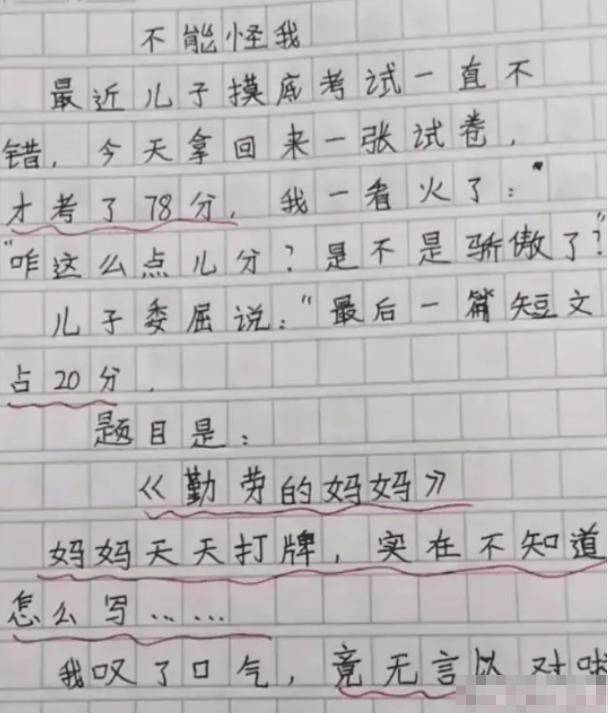 不能怪我
最近儿子摸底考试一直不
错，今天拿回来一张试卷，
才考了78分，我一看火了："
"咋这么点儿分？是不是骄傲了？"
儿子委屈说："最后一篇短文
占20分，
题目是：
《勤劳的妈妈》
妈妈天天打牌，实在不知道
怎么写……
我叹了口气，竟无言以对